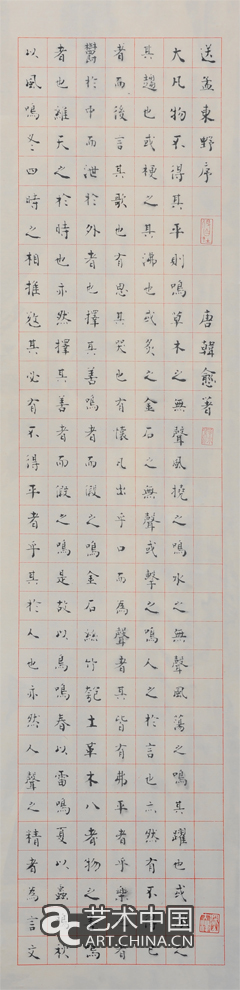 送孟東野序
唐韓愈著
大凡物不得其平則鳴草木之無聲風撓之鳴水之無聲風蕩之鳴其躍也或之
其趨也或梗之其沸也或炙之金石之無聲或擊之鳴人之於言也亦然有不已
者而後言其歌也有思其哭也有懷凡出乎口而爲聲者其皆有弗平者乎樂者
鬱於中而泄於外者也擇其善鳴者而假之鳴金石絲竹匏土革木八者物之鳴
者也維天之於時也亦然擇其善者而假之鳴是故以鳥鳴春以雷鳴夏以蟲秋
以風鳴冬四時之相推敚其必有不得平者乎其於人也亦然人聲之精者為言文
艺术中国
ART.CHINA.CN